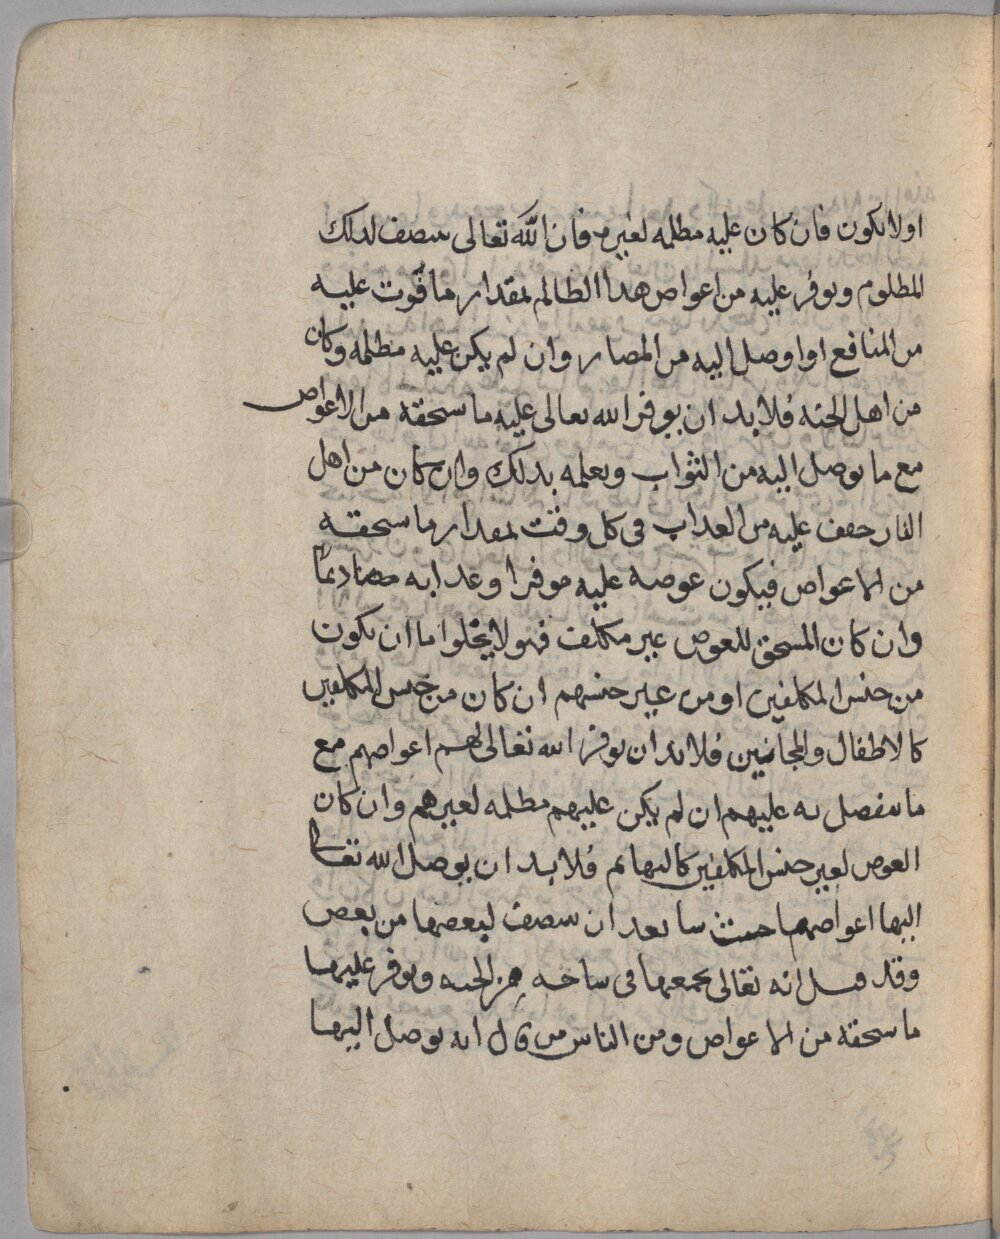 او لا يكون فان كان عليه مظلمه لغيره فان الله تعالى ينصف لذلك
المظلوم ويوفر عليه من اعواض هذا الظالم بمقدار ما فوت عليه
من المنافع او اوصل اليه من المضار وان لم يكن عليه مظلمه وكان
من اهل الجنه فلا بد ان يوفر الله تعالى عليه ما يستحقه من الاعواض
مع ما يوصل اليه من الثواب ويعلمه بذلك وان كان من اهل
النار خفف عليه من العذاب في كل وقت بمقدار ما يستحقه
من الاعواض فيكون عوضه عليه موفرا وعذابه دائما
وان كان المستحق للعوض غير مكلف فهو لا يخلوا ما ان يكون
من جنس المكلفين او من غير جنسهم ان كان من جنس المكلفين
كالاطفال والمجانين فلا بد ان يوفر الله تعالى لهم اعواضهم مع
ما يتفضل به عليهم ان لم يكن عليهم مظلمه لغيرهم وان كان
العوض لغير جنس المكلفين كالبهائم فلا بد ان يوصل الله تعالى
اليها اعواضها حيث شا بعد ان ينصف لبعضها من بعض
وقد قيل انه تعالى يجمعها في ساحه من الجنه ويوفر عليها
ما يستحقه من الاعواض ومن الناس من قال انه يوصل اليها